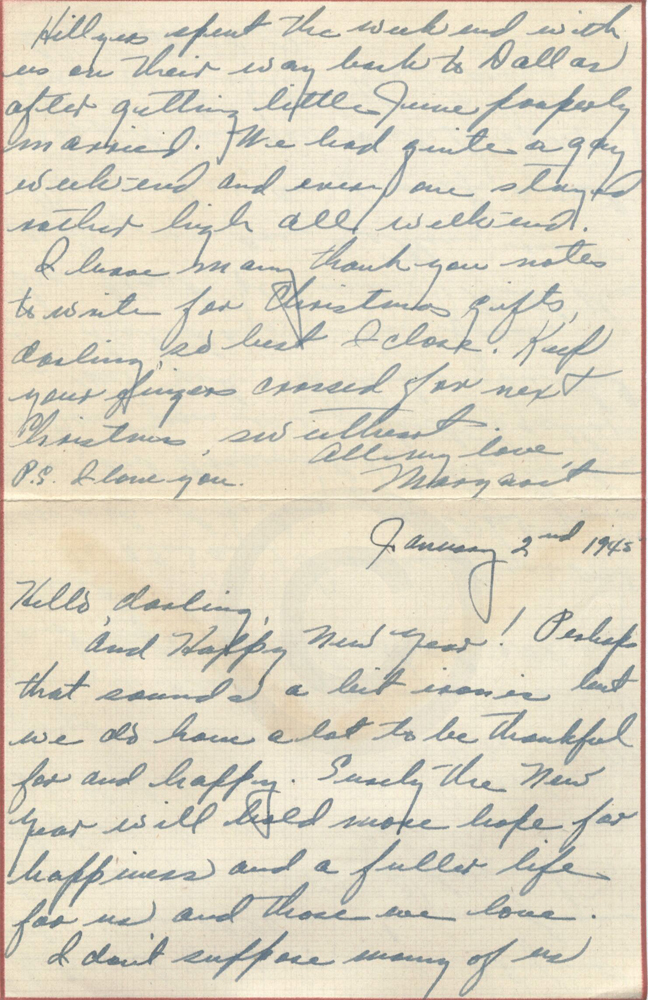 Hillyers spent the week end with
us on their way back to Dallas
after getting little June properly
married. We had quite a gay
week-end and every one stayed
rather high all week-end.
I have many thank you notes
to write for Christmas gifts,
darling, so best I close. Keep
your fingers crossed for next
Christmas, sweetheart.
All my love,
P.S. I love you. Margaret
January 2nd 1945
Hello darling,
And Happy New Year! Perhaps
that sounds a bit ironic but
we do have a lot to be thankful
for and happy. Surely the New
Year will hold more hope for
happiness and a fuller life
for us and those we love.
I don't suppose many of us